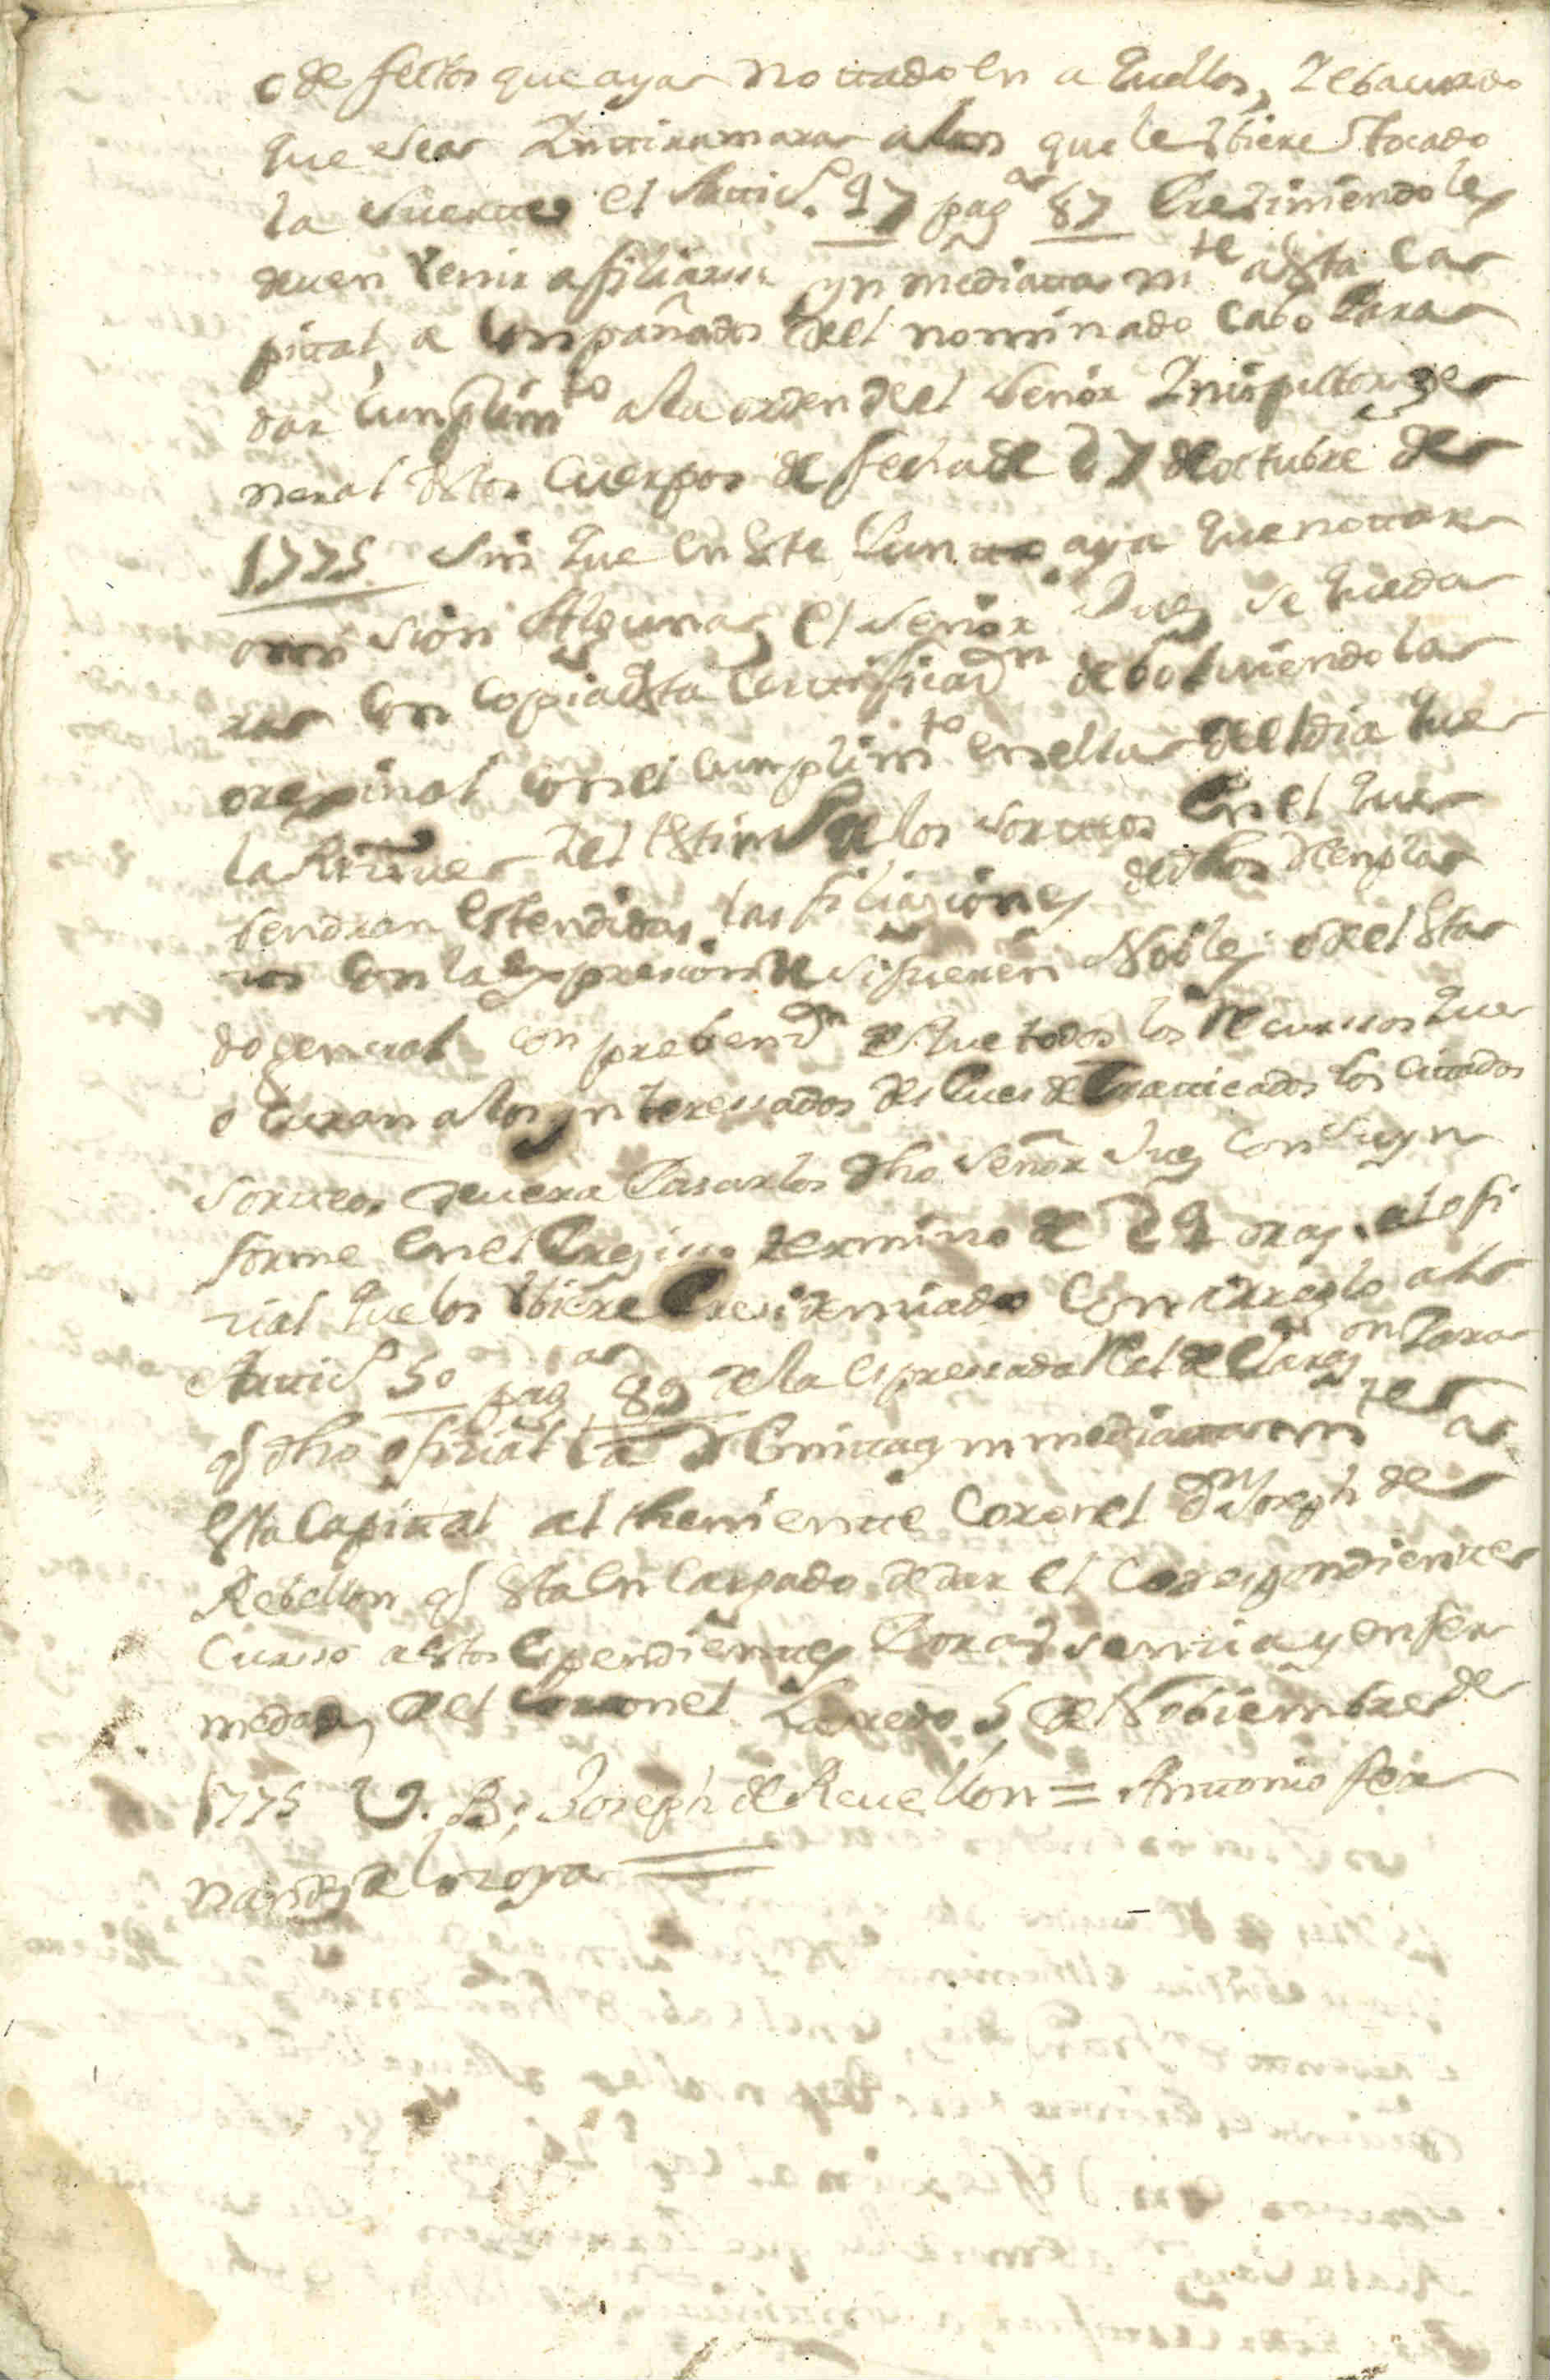 o defectos que aya nottado en aquellos, Y ebacuado
que sea Yntimara a los que les Vbiere tocado
la suertte el Artticº. 27 pagª 87 Previniendoles
deven Venir afiliarse ynmediattamte a esta Ca
pittal, a Conpañados del nominado Cabo Para
dar Cunplimto a la orden del Señor Ynispector ge
neral destos Cuerpos de fecha de 27 de octubre de
1775 sin que en Este Puntto aya que nottar
omision Alguna, el señor Juez se quedara
con Copia desta Certtificaon debolviendo la
orexinal con el Cunplimto en ella del dia que
la Reziue Y el testimº de los sorteos En el que
bendran estendidas las filiaciones de dhos Renpla
zos con la expresion de si fueren Nobles o del Esta
do general con prebenon de que todos los Recursos que
ocurran a los ynteresados despues de Practticados los cittados
sorteos devera Pasarlos dho Señor Juez con su yn
forme en el Preziso termino de 24 oras al ofi
cial que los Vbiere Presidenciado Con arreglo al
Artticº 50 pagª 89 de la espresada Rl declaraon Para
q dho oficial la Remitta ynmediattamte a
esta Capittal al theniente Coronel Dn Joseph de
Rebellon q Esta encargado de dar el Correspondiente
Curso a estos Espendientes Por ausencia y enfer
medad del Coronel Laredo 5 de Nobiembre de
1775 V. B. Joseph de Reuellon = Antonio Fer
nandez de Loroya =